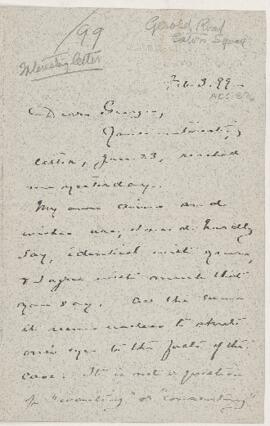 /99
Interesting letter
Gerald Road
Eaton Square
Feb. 3. 99
Dear George,
Your interesting
letter, Jan. 23, reached
me yesterday.
My own aims and
wishes are, I need hardly
say, identical with yours,
& I agree with much that
you say. At the same
it seems useless to shut
one's eyes to the facts of the
case. It is not a question
of "wanting" or "consenting"